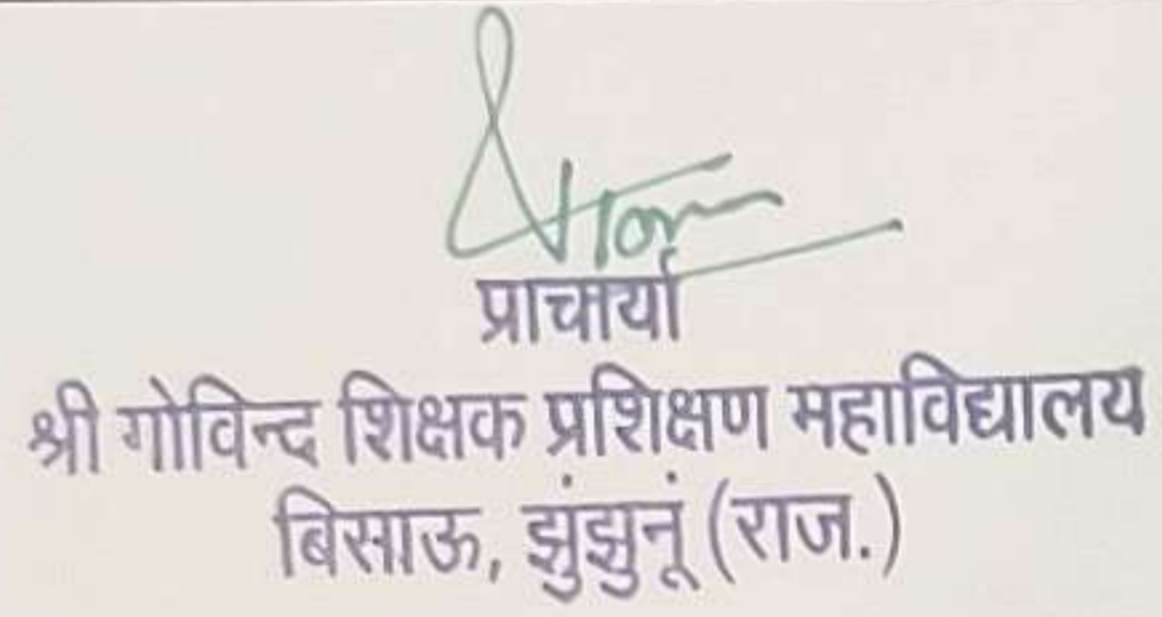 प्राचार्या
श्री गोविन्द शिक्षक प्रशिक्षण महाविद्यालय
बिसाऊ, झुंझुनूं (राज.)